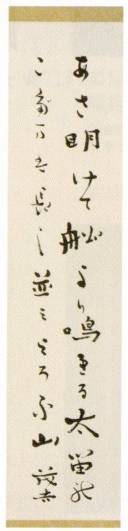 あさ明けて舩より鳴れる太笛の
こだまは長し並みよろふ山 茂吉